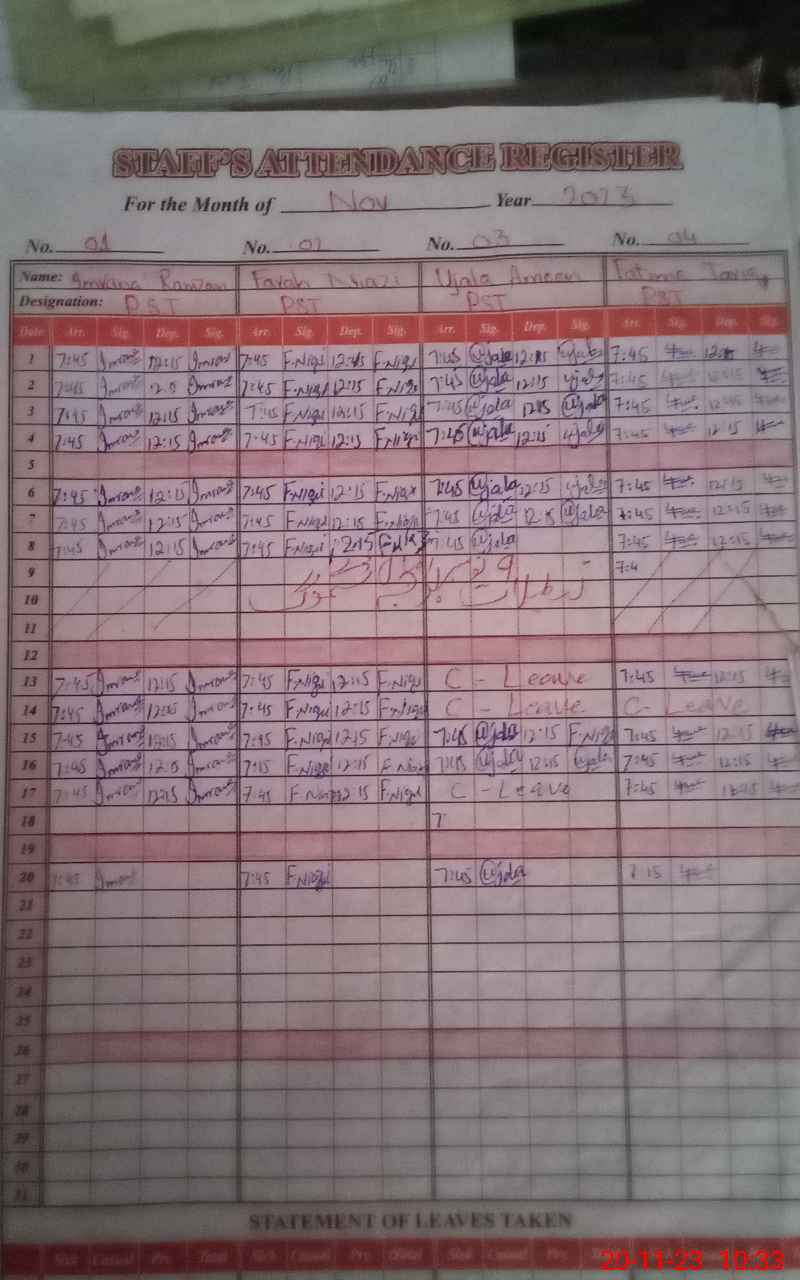 STAFF'S ATTENDANCE REGISTER
For the Month of Nov Year 2023
No. 01 No. 02 No. 03 No. 04
Name: Imrana Ramzan Farah Niazi Ujala Ameen Fatima
Designation: PST PST PST PST
Date Arr. Sig. Dep. Sig. Arr. Sig. Dep. Sig. Arr. Sig. Dep. Sig. Arr. Sig. Dep. Sig.
1 7:45 Imrana 12:15 Imrana 7:45 F.Niazi 12:15 F.Niazi 7:45 Ujala 12:15 Ujala 7:45 12:15
2 7:45 Imrana Imrana 7:45 F.Niazi 12:15 F.Niazi 7:45 Ujala 12:15 Ujala 7:45 12:15
3 7:45 Imrana 12:15 Imrana 7:45 F.Niazi 12:15 F.Niazi 7:45 Ujala 1215 Ujala 7:45 12:45
4 7:45 Imrana 12:15 Imrana 7:45 F.Niazi 12:15 F.Niazi 7:45 Ujala 12:15 Ujala 7:45 12:15
5
6 7:45 Imrana 12:15 Imrana 7:45 F.Niazi 12:15 F.Niazi 7:45 Ujala 12:15 Ujala 7:45 12:15
7 7:45 Imrana 12:15 Imrana 7:45 F.Niazi 12:15 F.Niazi 7:45 Ujala Ujala 7:45 12:15
8 7:45 Imrana 12:15 Imrana 7:45 F.Niazi 12:15 7:45 Ujala 7:45 12:15
9 7:4
10
11
12
13 7:45 Imrana 12:15 Imrana 7:45 F.Niazi 12:15 F.Niazi C - Leave 7:45 12:15
14 7:45 Imrana Imrana 7:45 F.Niazi 12:15 F.Niazi C - Leave C - Leave
15 7:45 Imrana 12:15 Imrana 7:45 F.Niazi 1215 F.Niazi 7:45 Ujala 12:15 F.Niazi 7:45 12:15
16 7:45 Imrana Imrana 7:15 F.Niazi 12:15 F.Niazi 7:45 Ujala 12:15 Ujala 7:45 12:15
17 7:45 Imrana 12:15 Imrana 7:45 F.Niazi 12:15 F.Niazi C - Leave 7:45
18 7:
19
20 7:45 Imrana 7:45 F.Niazi 7:45 Ujala
21
22
23
24
25
26
27
28
29
30
31
STATEMENT OF LEAVES TAKEN
Sick Casual Prv. Total Sick Casual Prv. Total Sick Casual Prv.
20-11-23 10:33